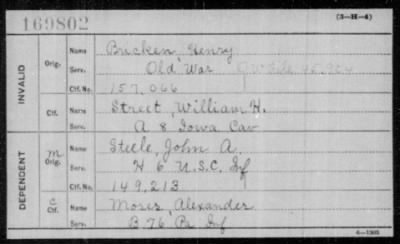 169802
(3-H-4)
INVALID
Orig.
Name Bricken, Henry
Serv. Old War
Ctf. No. 157,066
Ctf.
Name Street, William H.
Serv. A 8 Iowa Cav
DEPENDENT
M
Orig.
Name Steele, John A.
Serv. H 6 U.S.C. Inf
Ctf. No. 149,213
C
Ctf.
Name Moses, Alexander
Serv. B 76 Pa Inf
6—1303